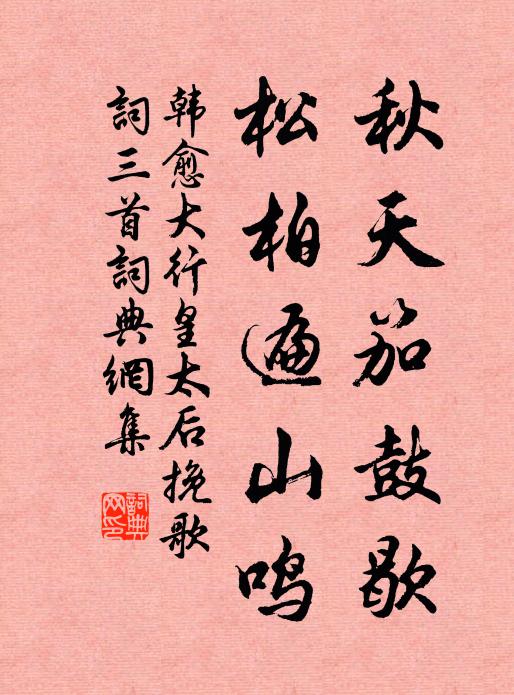 秋天笳鼓歇
松柏遍山鸣
韩愈大行皇太后挽歌
詞三首詞典網集
詞典网印